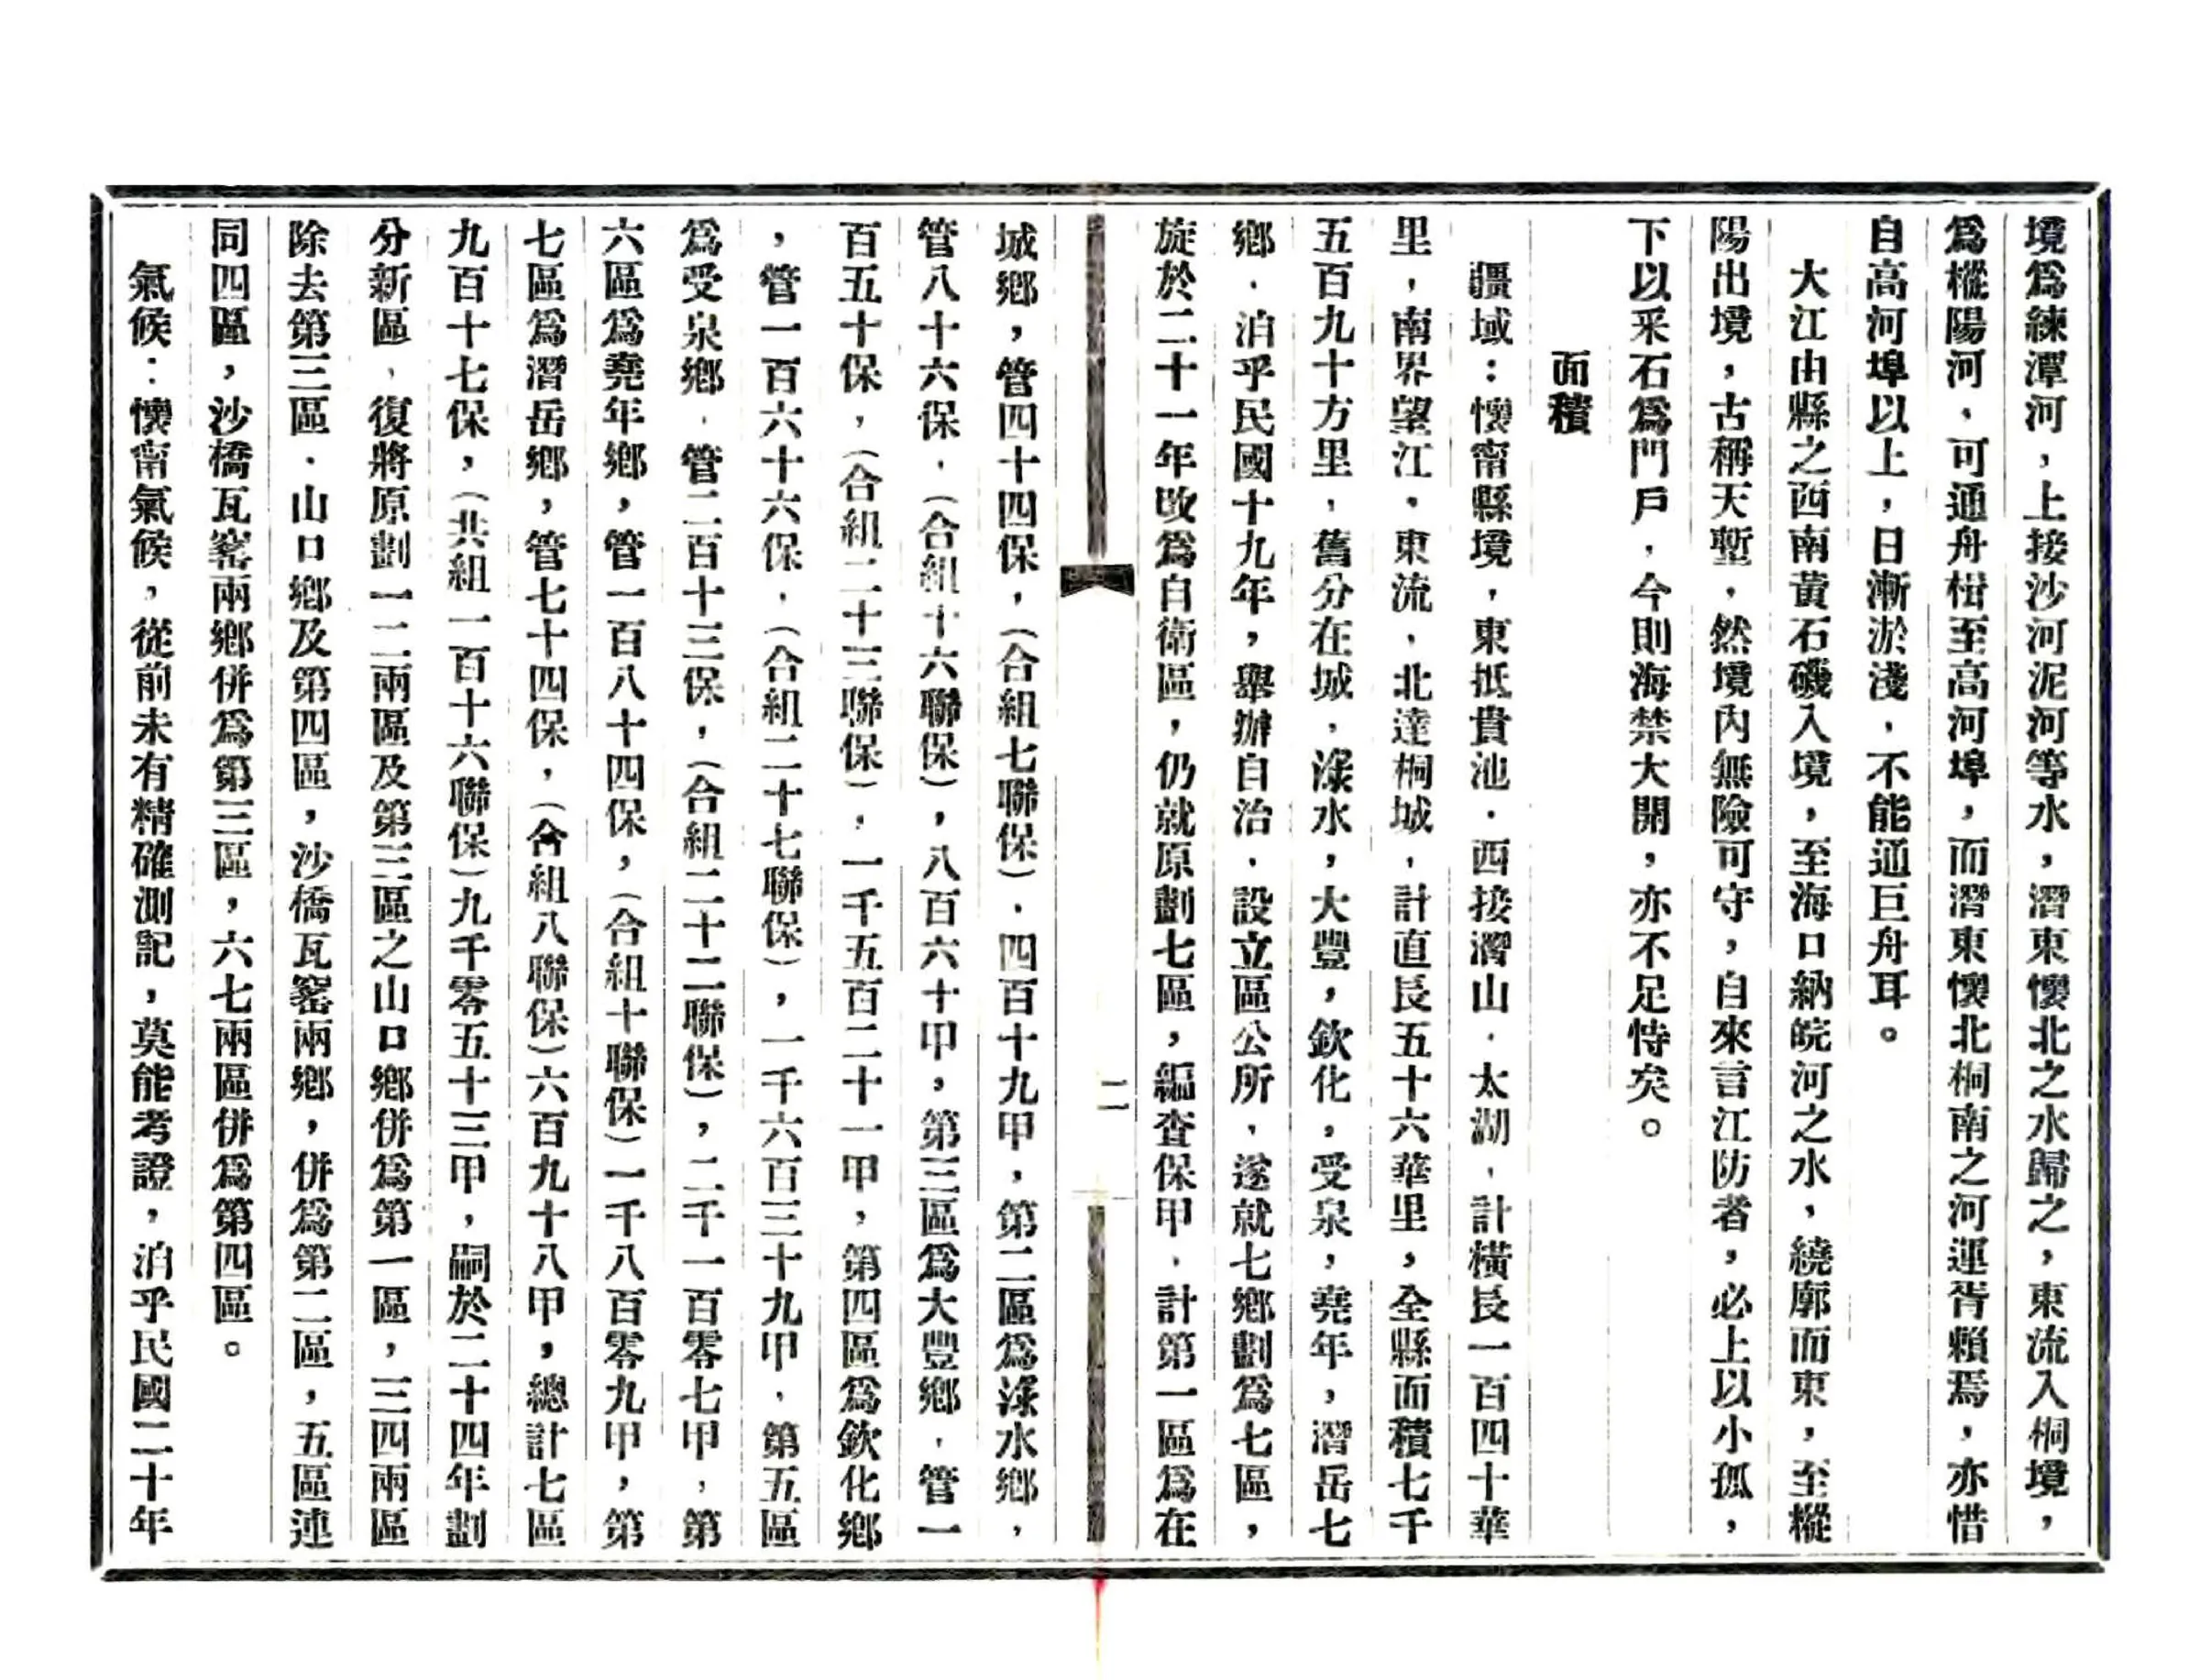 境爲練潭河，上接沙河泥河等水，潛東懷北之水歸之，東流入桐境，
爲樅陽河，可通舟楫至高河埠，而潛東懷北桐南之河運胥賴焉，亦惜
自高河埠以上，日漸淤淺，不能通巨舟耳。
大江由縣之西南黃石磯入境，至海口納皖河之水，繞廓而東，至樅
陽出境，古稱天塹，然境內無險可守，自來言江防者，必上以小孤，
下以采石爲門戶，今則海禁大開，亦不足恃矣。
面積
疆域：懷甯縣境，東抵貴池，西接潛山，太湖，計橫長一百四十華
里，南界望江，東流，北達桐城，計直長五十六華里，全縣面積七千
五百九十方里，舊分在城，淥水，大豐，欽化，受泉，堯年，潛岳七
鄉，洎乎民國十九年，舉辦自治，設立區公所，遂就七鄉劃爲七區，
旋於二十一年改爲自衛區，仍就原劃七區，編查保甲，計第一區爲在
二
城鄉，管四十四保，（合組七聯保），四百十九甲，第二區爲淥水鄉，
管八十六保，（合組十六聯保），八百六十甲，第三區爲大豐鄉，管一
百五十保，（合組二十三聯保），一千五百二十一甲，第四區爲欽化鄉
，管一百六十六保，（合組二十七聯保），一千六百三十九甲，第五區
爲受泉鄉，管二百十三保，（合組二十二聯保），二千一百零七甲，第
六區爲堯年鄉，管一百八十四保，（合組十聯保）一千八百零九甲，第
七區爲潛岳鄉，管七十四保，（合組八聯保）六百九十八甲，總計七區
九百十七保，（共組一百十六聯保）九千零五十三甲，嗣於二十四年劃
分新區，復將原劃一二兩區及第三區之山口鄉併爲第一區，三四兩區
除去第三區，山口鄉及第四區，沙橋瓦窰兩鄉，併爲第二區，五區連
同四區，沙橋瓦窰兩鄉併爲第三區，六七兩區併爲第四區。
氣候：懷甯氣候，從前未有精確測記，莫能考證，洎乎民國二十年